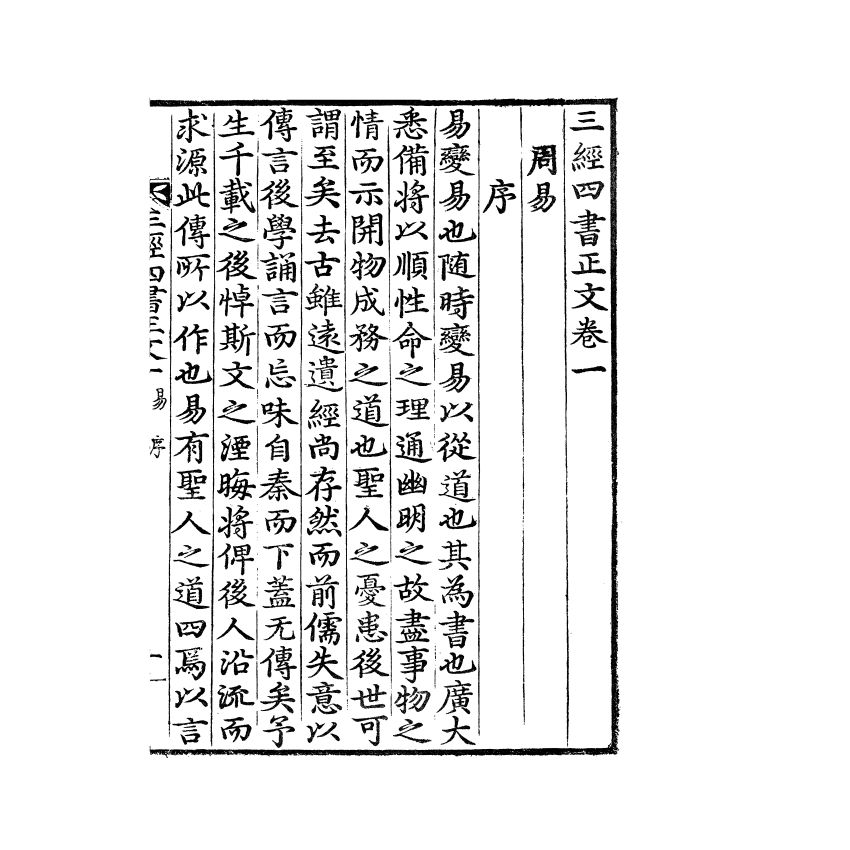 三經四書正文卷一
周易
序
易變易也随時變易以從道也其為書也廣大
悉備將以順性命之理通幽明之故盡事物之
情而示開物成務之道也聖人之憂患後世可
謂至矣去古雖遠遺經尚存然而前儒失意以
傳言後學誦言而忘味自秦而下蓋无傳矣予
生千載之後悼斯文之湮晦將俾後人沿流而
求源此傳所以作也易有聖人之道四焉以言
三經四書正文一 易 序 一